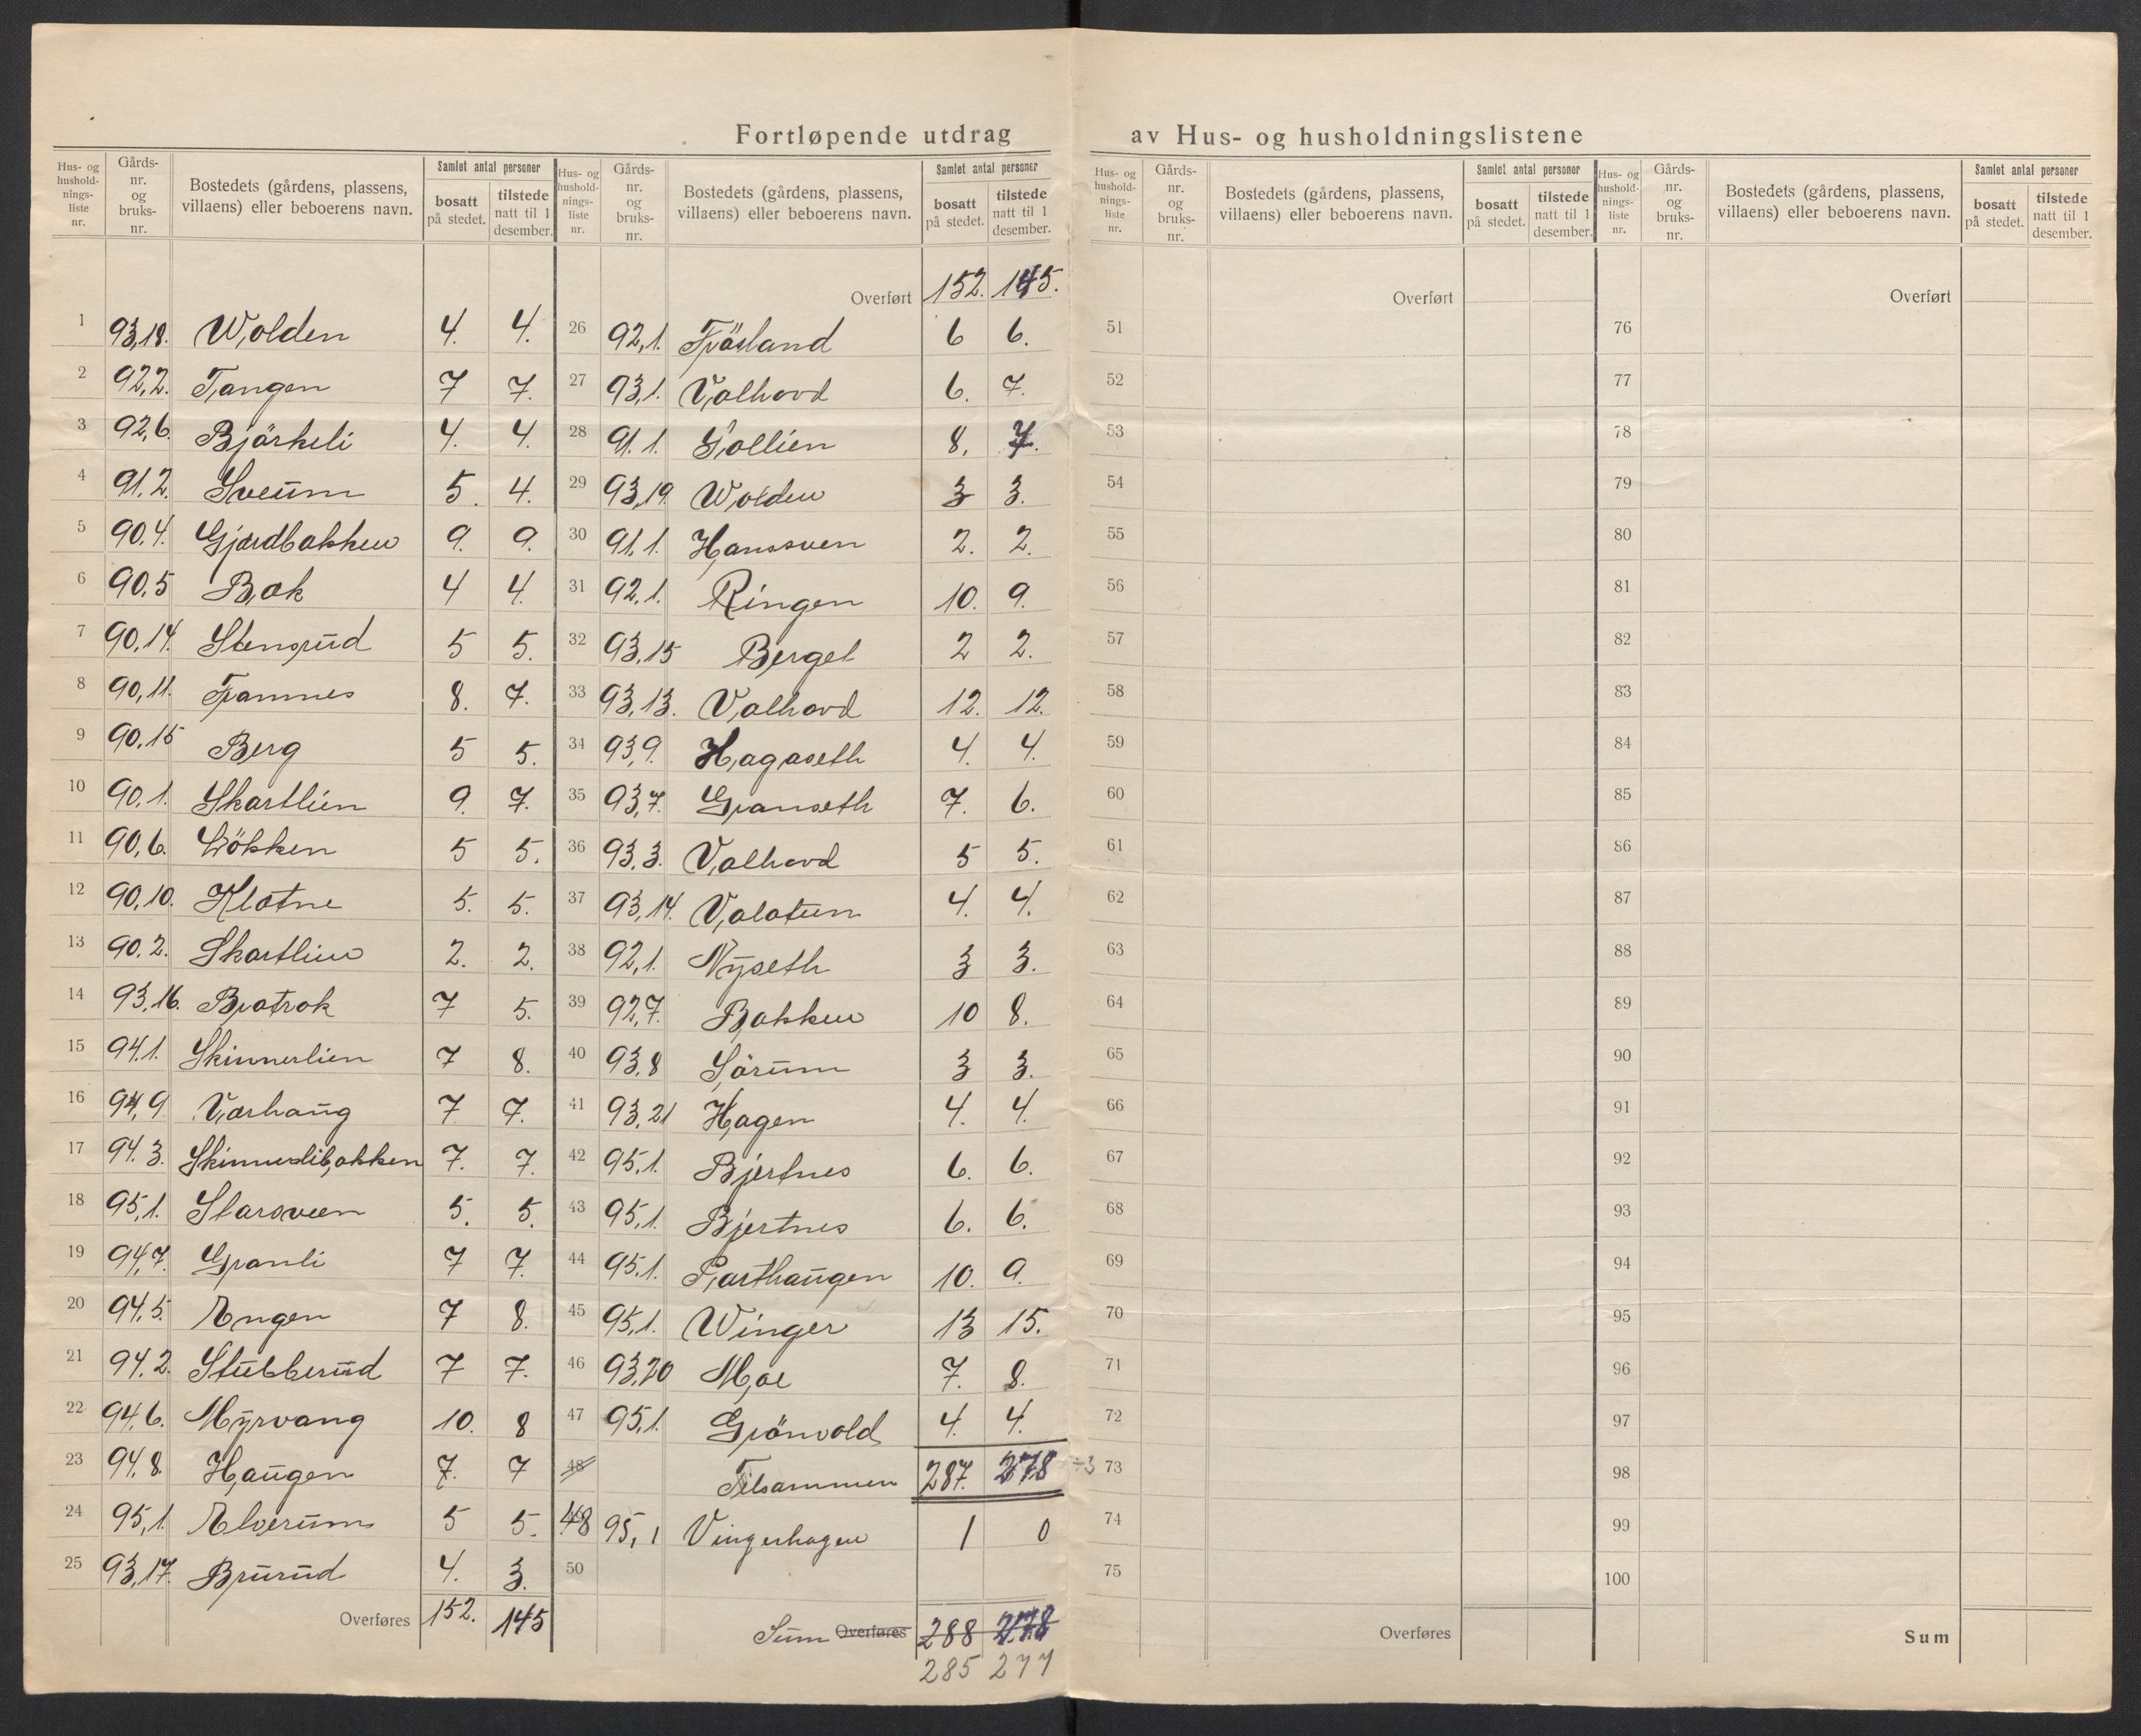 Fortløpende utdrag av Hus- og husholdningslistene
Hus- og husholdningsliste nr. | Gårds-nr. og bruks-nr. | Bostedets (gårdens, plassens, villaens) eller beboerens navn. | Samlet antal personer | bosatt på stedet. | tilstede natt til 1 desember.
1 93,18. Wolden 4. 4.
2 92,2. Tangen 7 7.
3 92,6. Bjørkeli 4. 4.
4 91,2. Sveum 5. 4.
5 90.4. Gjærdbakken 9. 9.
6 90.5 Bak 4 4.
7 90.14. Stensrud 5 5.
8 90,11. Framnes 8. 7.
9 90.15 Berg 5 5.
10 90.1. Skartlien 9. 7.
11 90,6. Løkken 5 5.
12 90,10. Klatne 5. 5.
13 90.2. Skartlien 2. 2.
14 93,16. Bratrok 7 5.
15 94.1. Skinnerlien 7 8.
16 94,9 Varhaug 7 7.
17 94.3. Skinnerlibakken 7. 7.
18 95,1. Starsveen 5. 5.
19 94,7. Granli 7 7.
20 94,5. Engen 7 8.
21 94.2. Stubberud 7 7.
22 94,6. Myrvang 10. 8
23 94,8. Haugen 7. 7
24 95,1. Elverum 5 5.
25 93,17. Brurud 4. 3.
Overføres 152. 145
Hus- og husholdningsliste nr. | Gårds-nr. og bruks-nr. | Bostedets (gårdens, plassens, villaens) eller beboerens navn. | Samlet antal personer | bosatt på stedet. | tilstede natt til 1 desember.
Overført 152. 145.
26 92,1. Frøsland 6 6.
27 93,1. Valhovd 6. 7.
28 91.1. Gollien 8, 7.
29 93,19. Wolden 3 3.
30 91,1. Hanssven 2. 2.
31 92,1. Ringen 10. 9.
32 93,15 Berget 2 2.
33 93,13. Valhovd 12. 12.
34 93,9. Hagaseth 4. 4.
35 93,7. Granseth 7. 6.
36 93.3. Valhovd 5 5.
37 93,14. Valatun 4. 4.
38 92,1. Nyseth 3 3.
39 92,7. Bakken 10 8.
40 93,8 Sørum 3 3.
41 93,21 Hagen 4. 4.
42 95,1. Bjertnes 6. 6.
43 95,1. Bjertnes 6. 6.
44 95,1. Parthaugen 10. 9.
45 95,1. Winger 13 15.
46 93,20 Moe 7. 8.
47 95,1. Grønvold 4. 4.
48 Tilsammen 287. 278 ÷3
48 95,1 Vingerhagen 1 0
50
Sum Overføres 288 278
285 277
Hus- og husholdningsliste nr. | Gårds-nr. og bruks-nr. | Bostedets (gårdens, plassens, villaens) eller beboerens navn. | Samlet antal personer | bosatt på stedet. | tilstede natt til 1 desember.
Overført
51
52
53
54
55
56
57
58
59
60
61
62
63
64
65
66
67
68
69
70
71
72
73
74
75
Overføres
Hus- og husholdningsliste nr. | Gårds-nr. og bruks-nr. | Bostedets (gårdens, plassens, villaens) eller beboerens navn. | Samlet antal personer | bosatt på stedet. | tilstede natt til 1 desember.
Overført
76
77
78
79
80
81
82
83
84
85
86
87
88
89
90
91
92
93
94
95
96
97
98
99
100
Sum